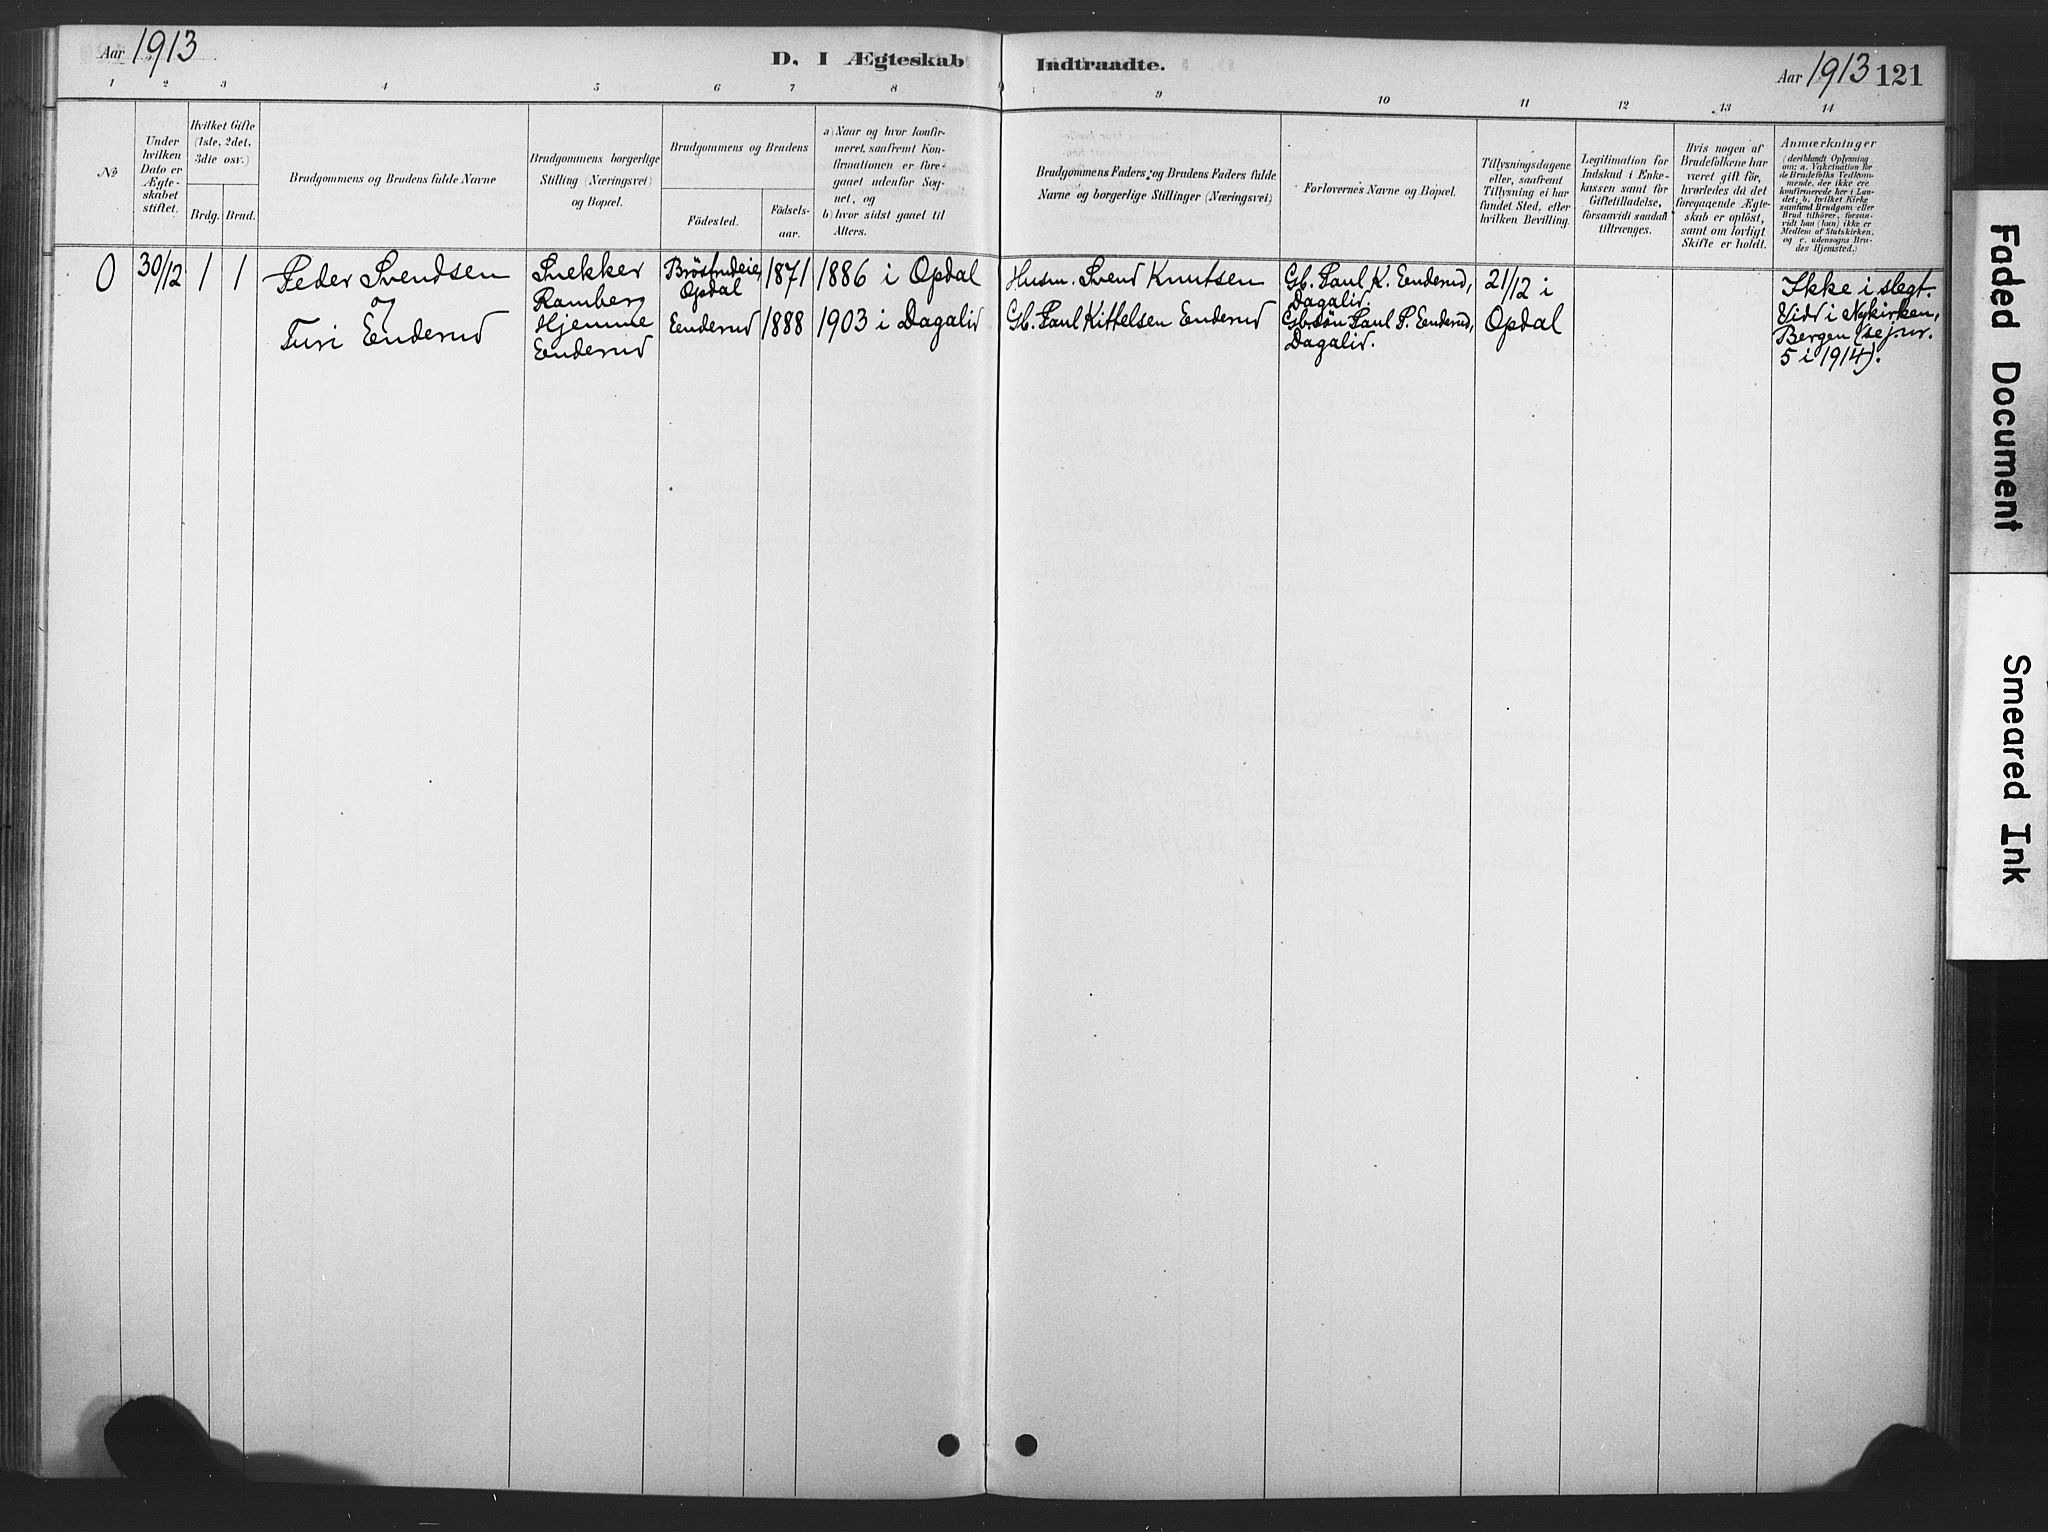 Aar 1913
D. I Ægteskab Indtraadte.
Aar 1913 121
1 2 3 4 5 6 7 8 9 10 11 12 13 14
No
Under
hvilken
Dato er
Ægte-
skabet
stiftet.
Hvilket Gifte
(1ste, 2det,
3die osv.)
Brdg. Brud.
Brudgommens og Brudens fulde Navne
Brudgommens borgerlige
Stilling (Næringsvei)
og Bopæl.
Brudgommens og Brudens
Födested.
Födsels-
aar.
a) Naar og hvor konfir-
meret, saafremt Kon-
firmationen er fore-
gaaet udenfor Sog-
net, og
b) hvor sidst gaaet til
Alters.
Brudgommens Faders og Brudens Faders fulde
Navne og borgerlige Stillinger (Næringsvei)
Forlovernes Navne og Bopæl.
Tillysningsdagene
eller, saafremt
Tillysning ei har
fundet Sted, efter
hvilken Bevilling.
Legitimation for
Indskud i Enke-
kassen samt for
Giftetilladelse,
forsaavidt saadan
tiltrænges.
Hvis nogen af
Brudefolkene har
været gift för,
hvorledes da det
foregaaende Ægte-
skab er oplöst,
samt om lovligt
Skifte er holdt.
Anmærkninger
(deriblandt Oplysning
om: a. Vakcination for
de Brudefolks Vedkom-
mende, der ikke ere
konfirmerede her i Lan-
det; b. hvilket Kirke
samfund Brudgom eller
Brud tilhörer, forsaa-
vidt han (hun) ikke er
Medlem af Statskirken,
og c. udensogns Bru-
des Hjemsted.)
0 30/12 1 1
Peder Svendsen
og
Turi Enderud
Snekker
Ramberg
Hjemme
Enderud
Bröstrudeie,
Opdal
Enderud
1871
1888
1886 i Opdal
1903 i Dagalid
Husm. Svend Knutsen
Gb. Paul Kittelsen Enderud
Gb. Paul K. Enderud,
Dagalid.
Gbsön Paul P. Enderud,
Dagalid.
21/12 i
Opdal
Ikke i slegt.
Vidd i Nykirken,
Bergen (se j.nr.
5 i 1914).
Faded Document
Smeared Ink